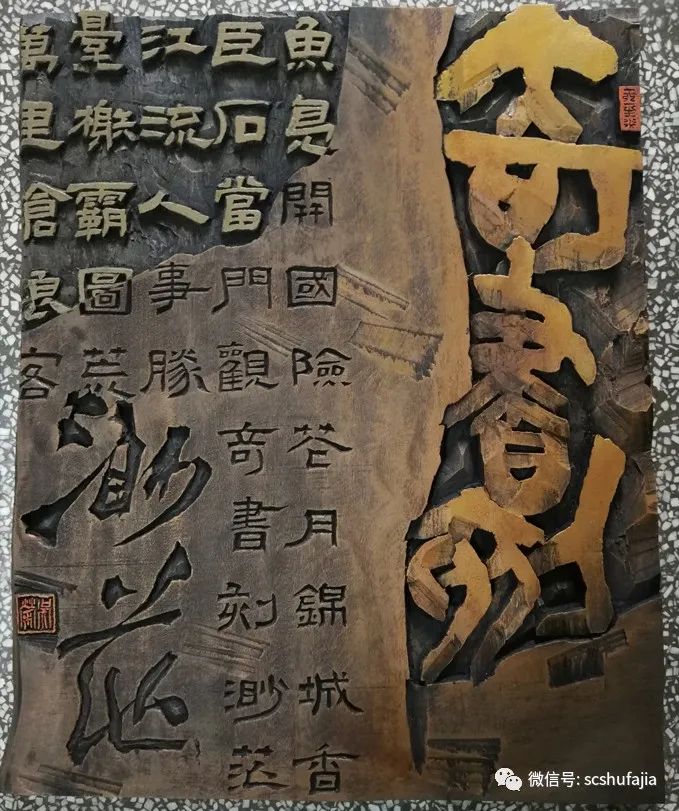 奇書刻
魚鳧開國險花月錦城香
巨石當門觀奇書刻渺茫
江流人事勝
臺榭霸圖荒
萬里滄浪客
渺茫
微信号: scshufajia